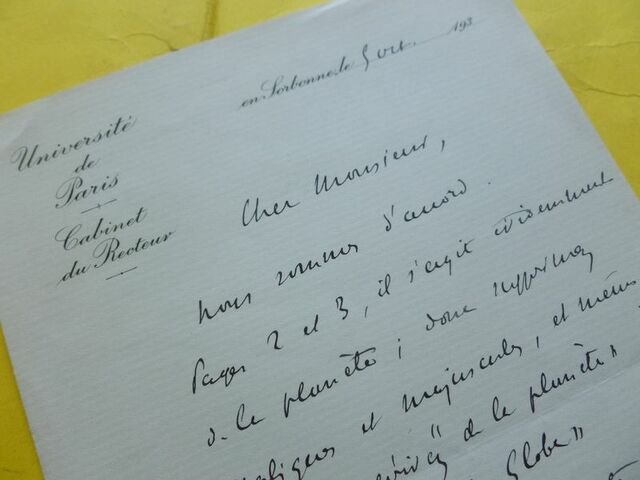 Université
de
Paris
Cabinet
du Recteur
en Sorbonne, le 5 oct. 193
Cher Monsieur,
nous sommes d'accord.
Pages 2 et 3, il s'agit évidemment
de la planète ; donc supprimez
italiques et majuscules, et même
écrivez "de la planète"
Globe"